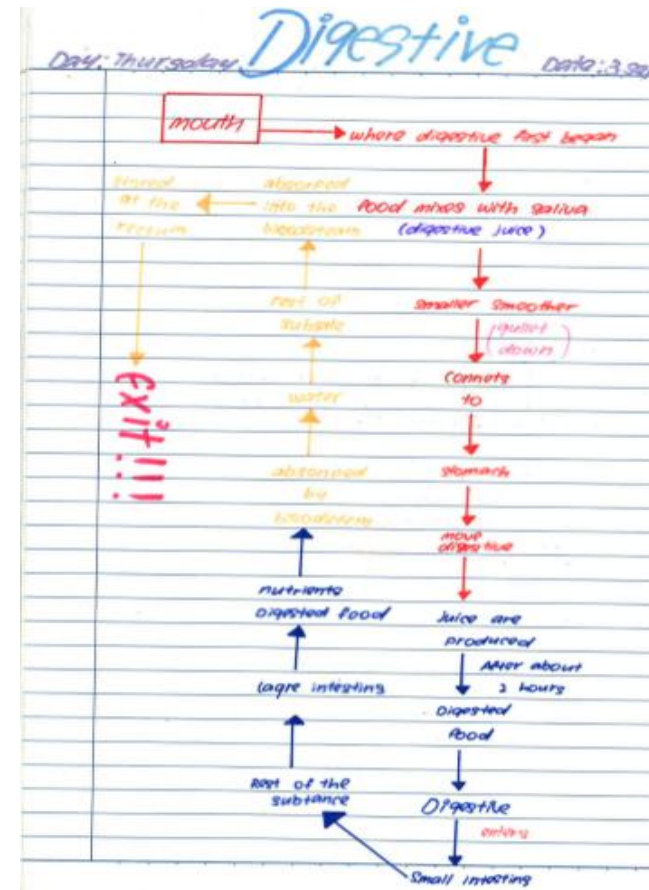 Digestive
Day: Thursday
Date: 3 Se
mouth
where digestive first began
food mixes with saliva
(digestive juice)
smaller smoother
(gullet
down)
connets
to
stomach
move
Juice are
produced
After about
2 hours
Digested
food
Digestive
enters
small intesting
Rest of the
subtance
lagre intesting
nutrients
Digested food
absorped
by
water
rest of
absorped
into the
at the
rectum
exit!!!